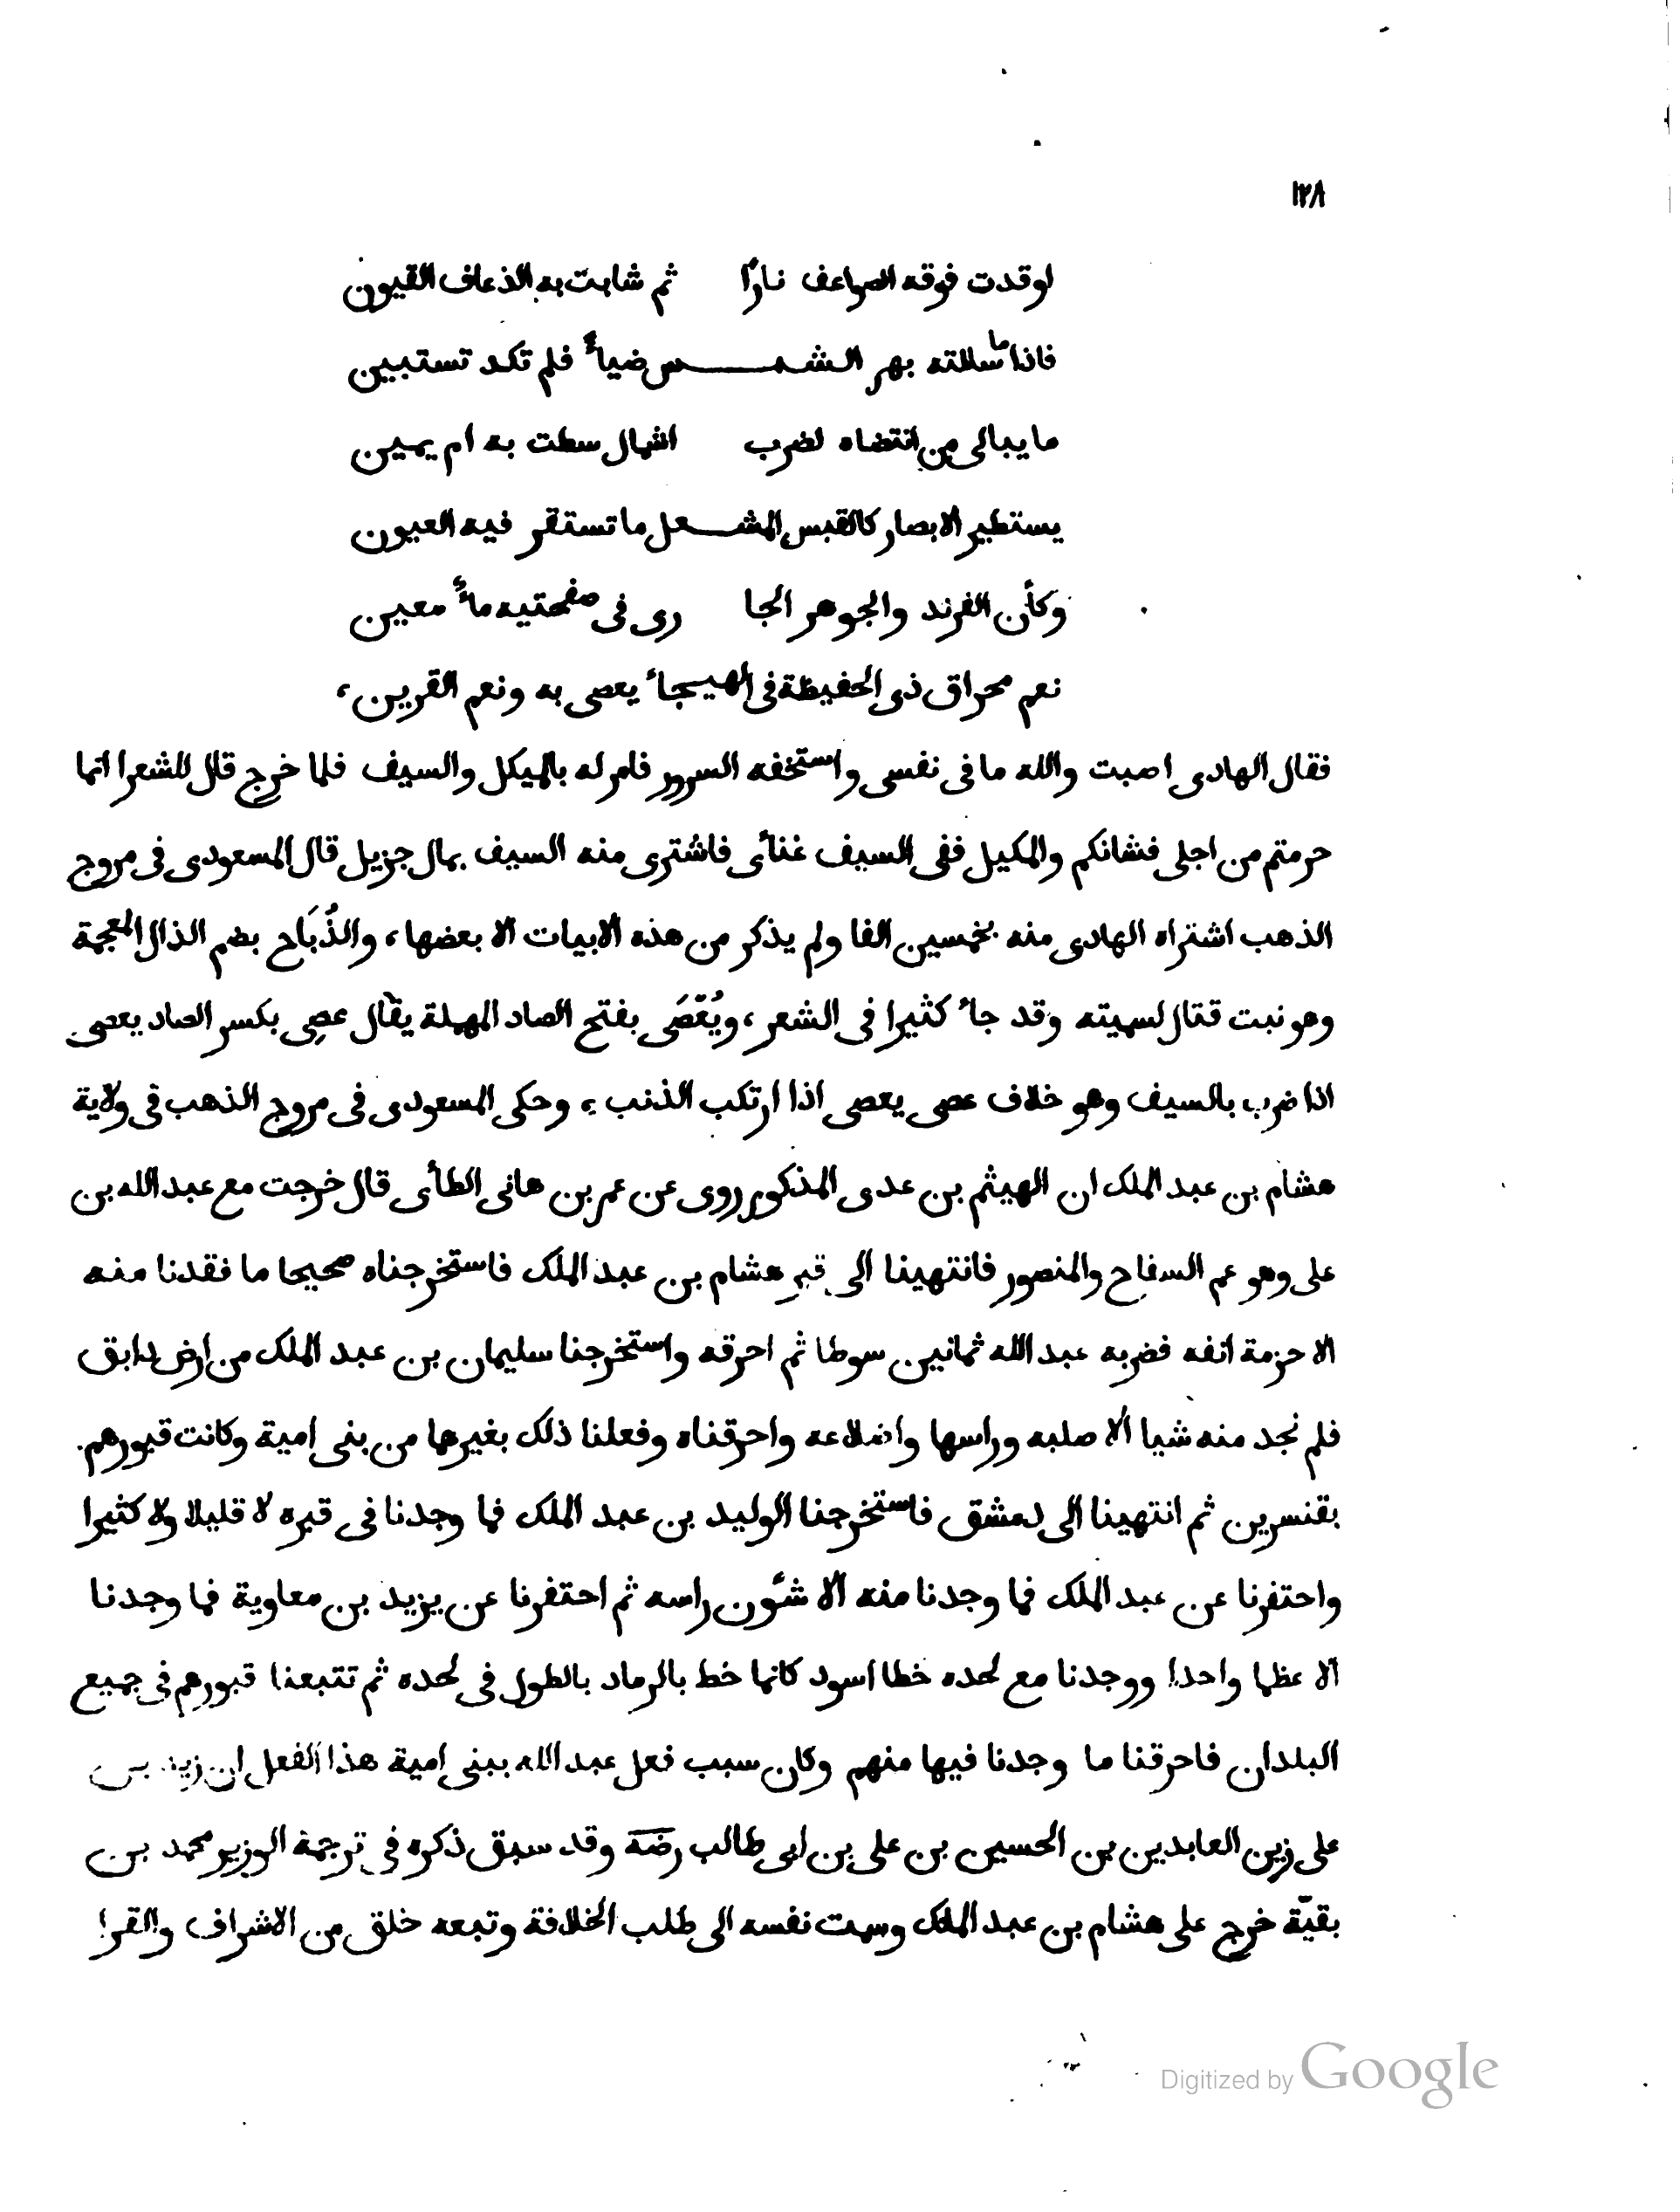 ١٢٨
لوقدت فوقه الصواعف نارًا ثم شابت به الذعاف القيون
فاذا ما سللته بهر الشمس ضياءً فلم تكد تستبين
ما يبالى من انتضاه لضرب اشمال سطت به ام يمين
يستطير الابصار كالقبس المشعل ما تستقر فيه العيون
وكأن الفرند والجوهر الجا رى فى صفحتيه ماءً معين
نعم مخراق ذى الحفيظة فى الهيجاء يعصى به ونعم القرين،
فقال الهادى اصبت والله ما فى نفسى واستخفه السرور فامر له بالميكل والسيف فلما خرج قال للشعرا انما
حرمتم من اجلى فشانكم والمكيل ففى السيف غنأى فاشترى منه السيف بمال جزيل قال المسعودى فى مروج
الذهب اشتراه الهادى منه بخمسين الفا ولم يذكر من هذه الابيات الا بعضها، والذُبَاح بضم الذال المعجمة
وهو نبت قتال لسميته وقد جاء كثيرا فى الشعر، ويُعْصَى بفتح الصاد المهملة يقال عصِى بكسر الصاد يعصى
اذا ضرب بالسيف وهو خلاف عصى يعصى اذا ارتكب الذنب، وحكى المسعودى فى مروج الذهب فى ولاية
هشام بن عبد الملك ان الهيثم بن عدى المذكور روى عن عمر بن هانى الطأى قال خرجت مع عبد الله بن
على وهو عم السفاح والمنصور فانتهينا الى قبر هشام بن عبد الملك فاستخرجناه صحيحا ما فقدنا منه
الا حزمة انفه فضربه عبد الله ثمانين سوطا ثم احرقه واستخرجنا سليمان بن عبد الملك من ارض دابق
فلم نجد منه شيا الا صلبه وراسها واضلاعه واحرقناه وفعلنا ذلك بغيرها من بنى امية وكانت قبورهم
بقنسرين ثم انتهينا الى دمشق فاستخرجنا الوليد بن عبد الملك فما وجدنا فى قبره لا قليلا ولا كثيرا
واحتفرنا عن عبد الملك فما وجدنا منه الا شئون راسه ثم احتفرنا عن يزيد بن معاوية فما وجدنا
الا عظما واحدا ووجدنا مع لحده خطا اسود كانما خط بالرماد بالطول فى لحده ثم تتبعنا قبورهم فى جميع
البلدان فاحرقنا ما وجدنا فيها منهم وكان سبب فعل عبد الله ببنى امية هذا الفعل ان زيد بن
على زين العابدين بن الحسين بن على بن ابى طالب رضه وقد سبق ذكره فى ترجمة الوزير محمد بن
بقيّة خرج على هشام بن عبد الملك وسمت نفسه الى طلب الخلافة وتبعه خلق من الاشراف والقرا
Digitized by Google